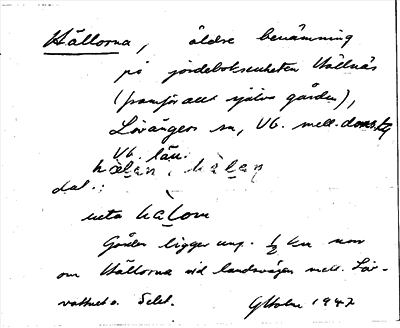 Hällorna, äldre benämning
på jordeboksenheten Hällnäs
(framför allt själva gården),
Lövångers sn, Vb. mell. doms.
Vb. län.
dal.:
uete
Gården ligger ung. ½ km norr
om Hällorna vid landsvägen mell. Löv-
vattnet o. Selet. GHolm 1947